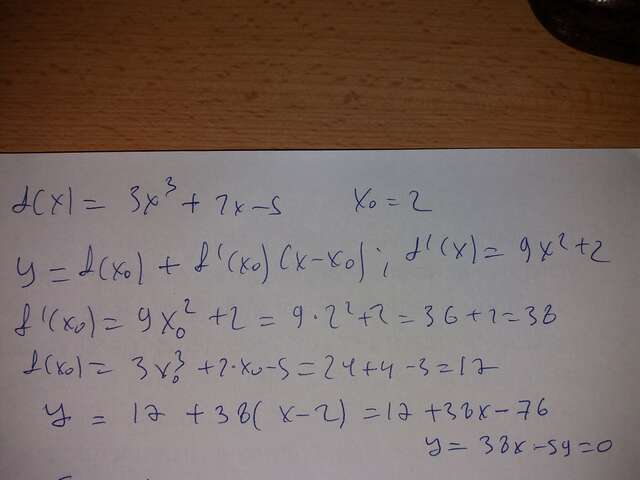 f(x) = 3x³ + 2x - 5 x₀ = 2
y = f(x₀) + f'(x₀)(x - x₀); f'(x) = 9x² + 2
f'(x₀) = 9x₀² + 2 = 9·2² + 2 = 36 + 2 = 38
f(x₀) = 3x₀³ + 2·x₀ - 5 = 24 + 4 - 3 = 12
y = 17 + 38(x - 2) = 17 + 38x - 76
y = 38x - 59 = 0